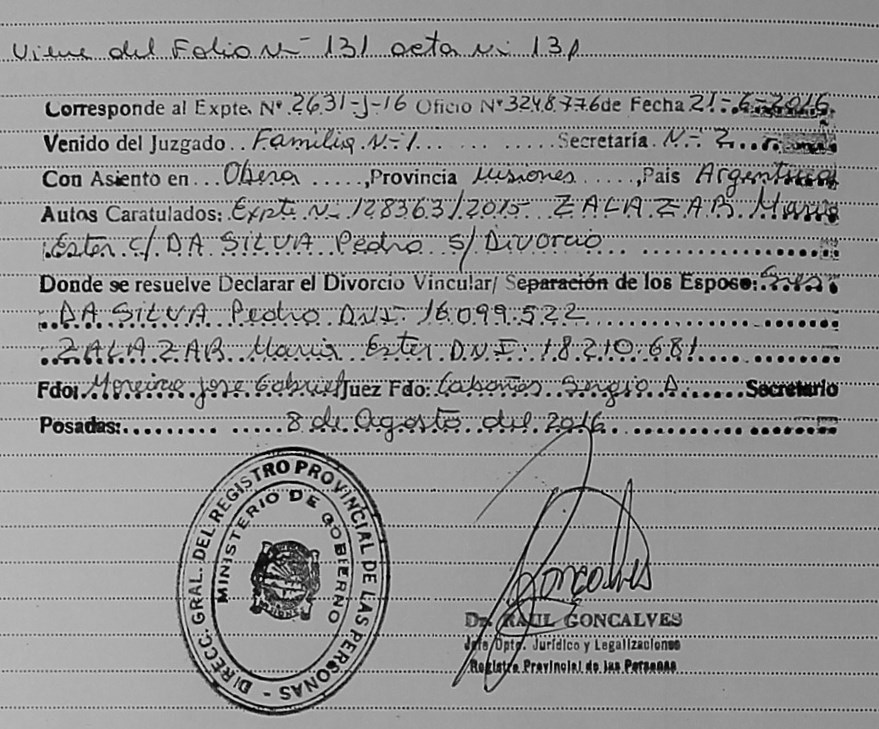 Viene del Folio Nº 131 acta Nº 131
Corresponde al Expte. Nº 2631-J-16 Oficio Nº 3248.776 de Fecha 21-6-2016
Venido del Juzgado.. Familia N-1 ... Secretaría. N-2...
Con Asiento en... Obera ....., Provincia Misiones ....., País Argentina
Autos Caratulados: Expte Nº 128363/2015 ZALAZAR Maria
Ester c/ DA SILVA Pedro s/ Divorcio
Donde se resuelve Declarar el Divorcio Vincular/ Separación de los Esposo:
DA SILVA Pedro D.N.I. 16.099.522
ZALAZAR Maria Ester D.N.I. 18.210.681
Fdo: Moreira Jose Gabriel Juez Fdo: Cabañas Sergio A. Secretario
Posadas:......... ..... 8 de Agosto del 2016
DIRECC. GRAL. DEL REGISTRO PROVINCIAL DE LAS PERSONAS -
MINISTERIO DE GOBIERNO
Goncalves
Dr. RAUL GONCALVES
Jefe Dpto. Jurídico y Legalizaciones
Registro Provincial de las Personas